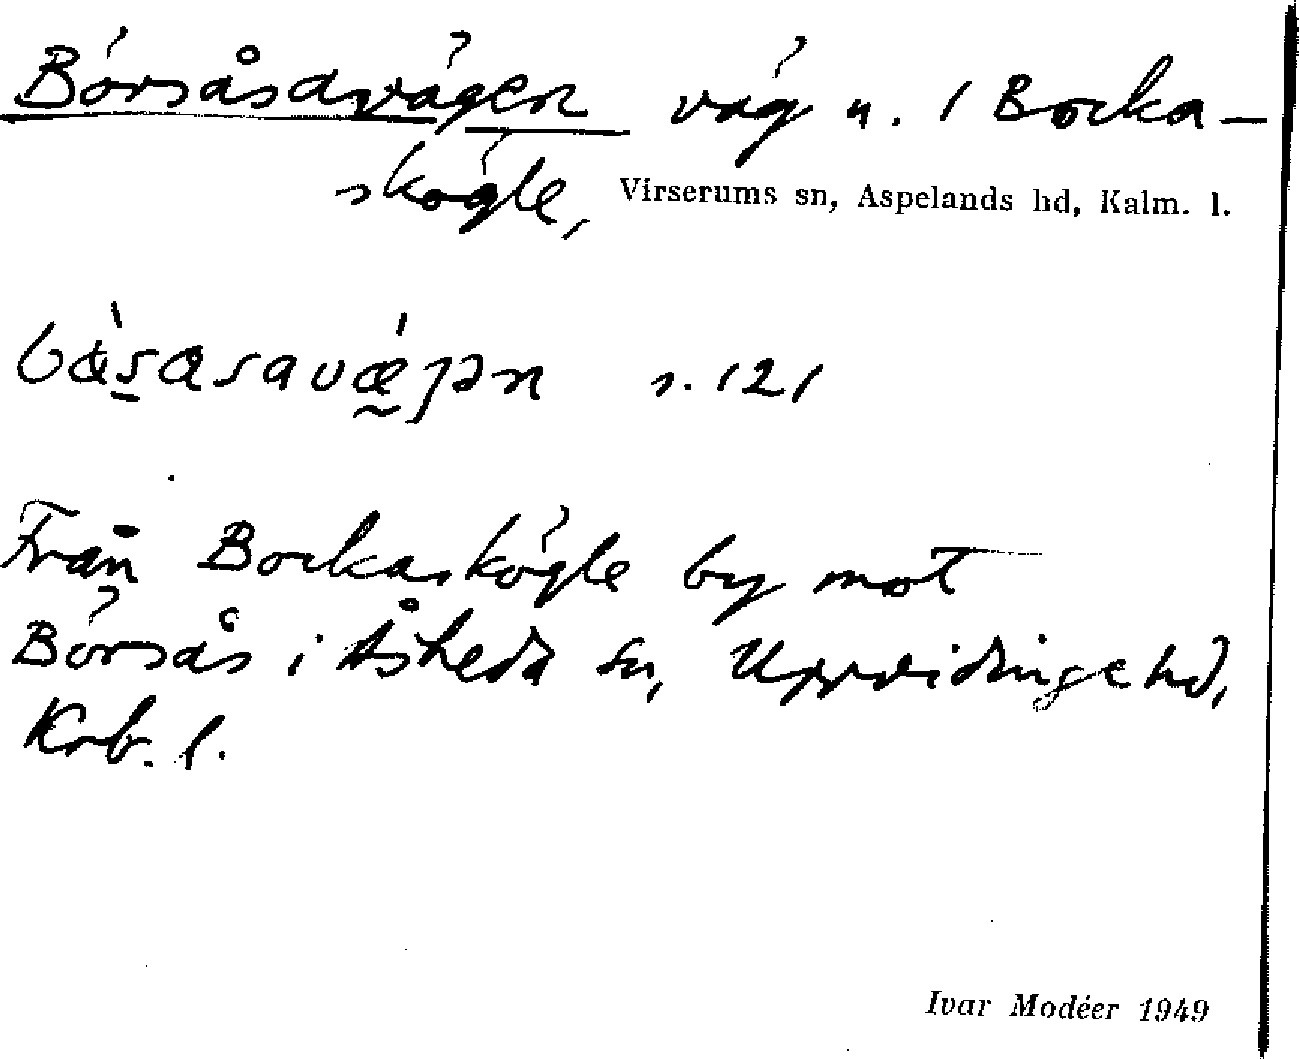 Börsåsavägen väg n. i Bocka-
skögle, Virserums sn, Aspelands hd, Kalm. l.
s. 121
Från Bockaskögle by mot
Börsås i Åsheda sn, Uppvidinge hd,
Krb. l.
Ivar Modéer 1949